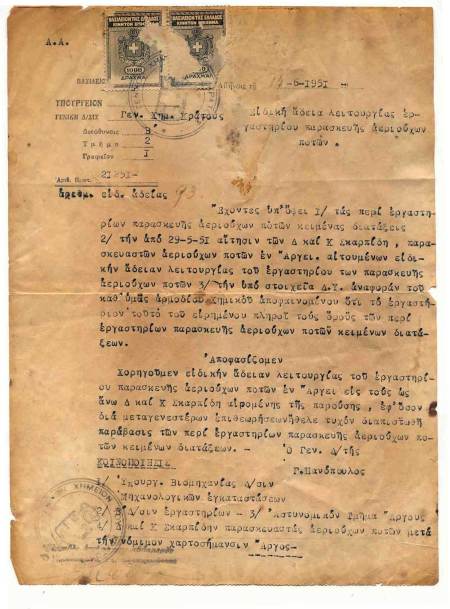 Λ.Λ.
ΒΑΣΙΛΕΙΟΝ ΤΗΣ ΕΛΛΑΔΟΣ
ΚΙΝΗΤΟΝ ΕΠΙΣΗΜΑ
1000
ΔΡΑΧΜΑΙ
ΒΑΣΙΛΕΙΟΝ ΤΗΣ ΕΛΛΑΔΟΣ
ΚΙΝΗΤΟΝ ΕΠΙΣΗΜΑ
ΔΡΑΧΜΑΙ
ΒΑΣΙΛΕΙΟ
Ἀθήνῃσι τῇ -6-1951 -
ΥΠΟΥΡΓΕΙΟΝ
ΓΕΝΙΚΗ Δ/ΣΙΣ Γεν. Χημ. Κράτους
Διεύθυνσις Β
Τμῆμα 2
Γραφεῖον Ι
Ἀριθ. Πρωτ. 21251-
ἀριθμ. εἰδ. ἀδείας 93
Εἰδική ἄδεια λειτουργίας ἐρ-
γαστηρίου παρασκευῆς ἀεριούχων
ποτῶν .
Ἔχοντες ὑπ'ὄψει 1/ τάς περί ἐργαστη-
ρίων παρασκευῆς ἀεριούχων ποτῶν κειμένας διατάξεις
2/ τήν ἀπό 29-5-51 αἴτησιν τῶν Δ καί Κ Σκαρπίδη , παρα-
σκευαστῶν ἀεριούχων ποτῶν ἐν Ἄργει. αἰτουμένων εἰδι-
κήν ἄδειαν λειτουργίας τοῦ ἐργαστηρίου των παρασκευῆς
ἀεριούχων ποτῶν 3/ τήν ὑπό στοιχεῖα Δ.Υ. ἀναφοράν τοῦ
καθ'ὑμᾶς ἁρμοδίου χημικοῦ ἀποφαινομένου ὅτι τό ἐργαστή-
ριον τοῦτο τοῦ εἰρημένου πληροῖ τούς ὅρους τῶν περί
ἐργαστηρίων παρασκευῆς ἀεριούχων ποτῶν κειμένων διατά-
ξεων.
Ἀποφασίζομεν
Χορηγοῦμεν εἰδικήν ἄδειαν λειτουργίας τοῦ ἐργαστηρί-
ου παρασκευῆς ἀεριούχων ποτῶν ἐν Ἄργει εἰς τούς ὡς
ἄνω Δ καί Κ Σκαρπίδη αἰρομένης τῆς παρούσης , ἐφ'ὅσον
διά μεταγενεστέρων ἐπιθεωρήσεων ἤθελε τυχόν διαπιστωθῆ
παράβασις τῶν περί ἐργαστηρίων παρασκευῆς ἀεριούχων πο-
τῶν κειμένων διατάξεων. - Ὁ Γεν. Δ/τής
ΚΟΙΝΟΠΟΙΗΣΙΣ
Γ. Πανόπουλος
1/ Ὑπουργ. Βιομηχανίας Δ/σιν
Μηχανολογικῶν ἐγκαταστάσεων
2/ Β Δ/σιν ἐργαστηρίων - 3/ Ἀστυνομικόν Τμῆμα Ἄργους
4/ Δ καί Κ Σκαρπίδην παρασκευαστάς ἀεριούχων ποτῶν μετά
τήν νόμιμον χαρτοσήμανσιν Ἄργος-
ΧΗΜΕΙΟΝ